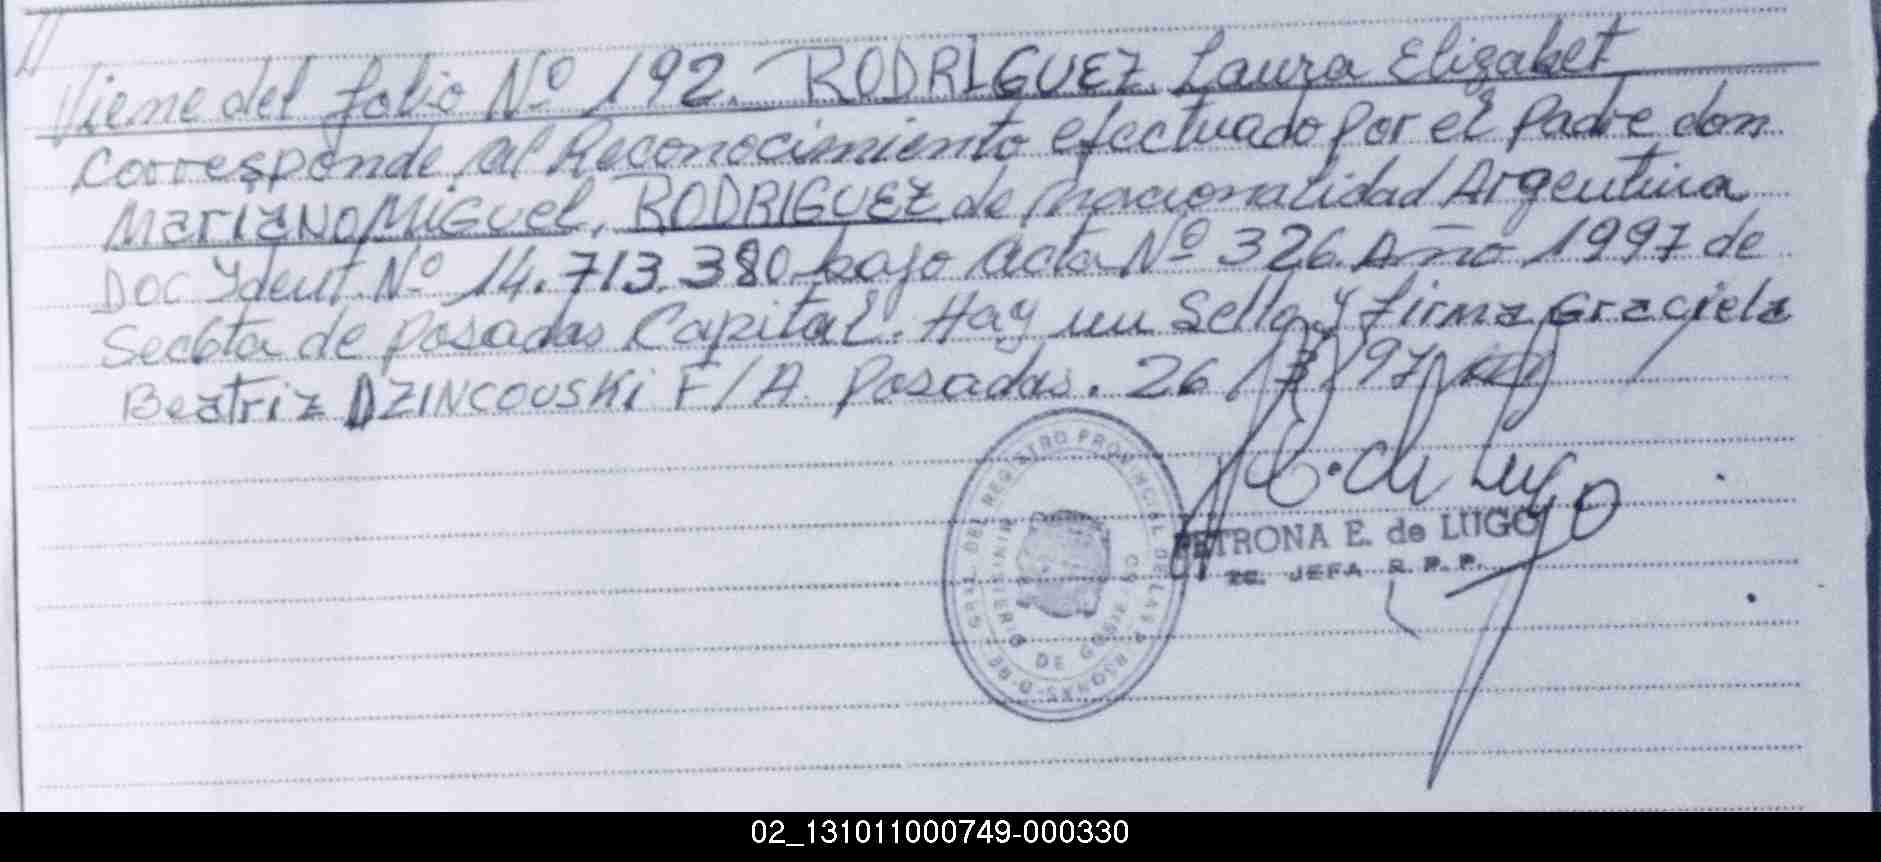 //
Viene del folio Nº 192. RODRIGUEZ Laura Elizabet
Corresponde al Reconocimiento efectuado por el padre don
Mariano Miguel, RODRIGUEZ de nacionalidad Argentina
Doc Ydent. Nº 14.713.380 bajo acta Nº 326. Año 1997 de
Seccta de Posadas Capital. Hay un Sello y firma Graciela
Beatriz DZINCOVSKI F/A. Posadas. 26 / 97
E. de Lugo
PETRONA E. de LUGO
JEFA R. P. P.
GRAL. DEL REGISTRO PROVINCIAL DE LAS P
MINISTERIO DE GOBIERNO
02_131011000749-000330